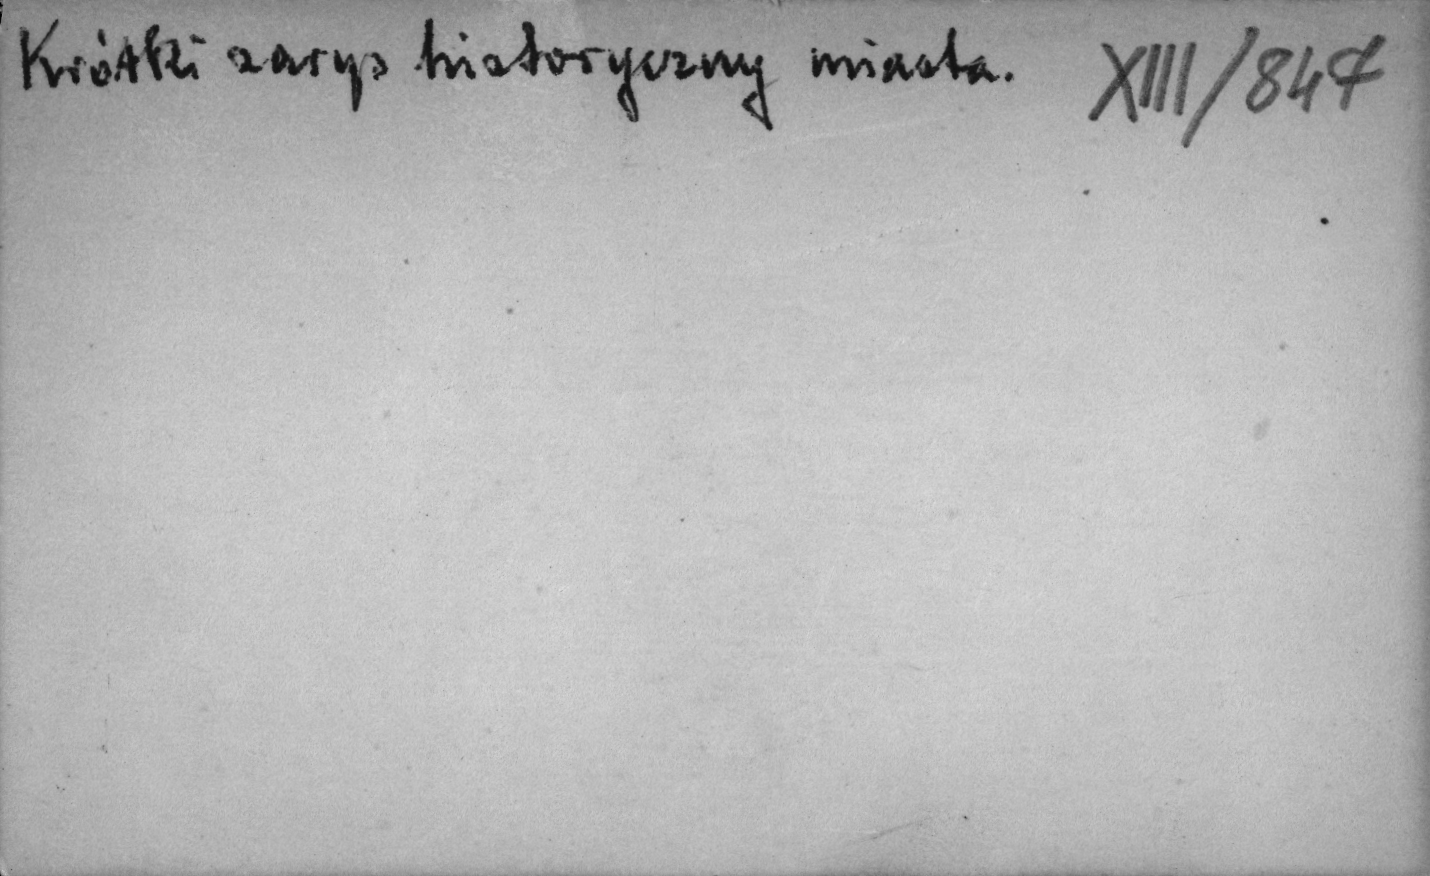 Krótki zarys historyczny miasta. XIII/847